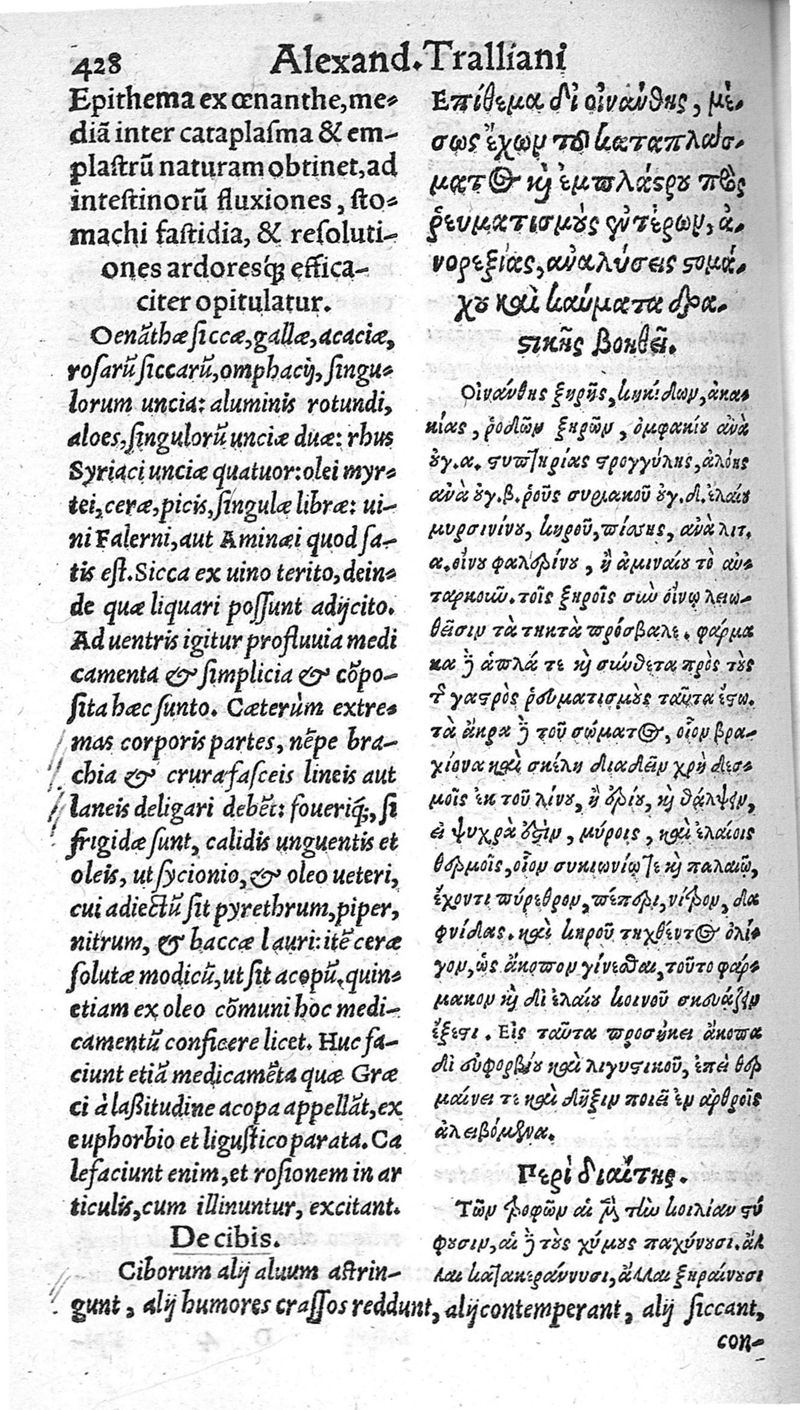 428
Alexand. Tralliani
Epithema ex œnanthe, me-
diā inter cataplasma & em-
plastrū naturam obtinet, ad
intestinorū fluxiones, sto-
machi fastidia, & resoluti-
ones ardoresq́; effica-
citer opitulatur.
Oenāthæ siccæ, gallæ, acaciæ,
rosarū siccarū, omphacij, singu-
lorum uncia: aluminis rotundi,
aloes, singulorū unciæ duæ: rhus
Syriaci unciæ quatuor: olei myr-
tei, ceræ, picis, singulæ libræ: ui-
ni Falerni, aut Aminæi quod sa-
tis est. Sicca ex uino terito, dein-
de quæ liquari possunt adijcito.
Ad uentris igitur profluuia medi
camenta & simplicia & cōpo-
sita hæc sunto. Cæterùm extre-
mas corporis partes, nēpe bra-
chia & crura fasceis lineis aut
laneis deligari debēt: foueriq́;, si
frigidæ sunt, calidis unguentis et
oleis, ut sycionio, & oleo ueteri,
cui adiectū sit pyrethrum, piper,
nitrum, & baccæ lauri: itē ceræ
solutæ modicū, ut sit acopū. quin-
etiam ex oleo cōmuni hoc medi-
camentū conficere licet. Huc fa-
ciunt etiā medicamēta quæ Græ
ci à laßitudine acopa appellāt, ex
euphorbio et ligustico parata. Ca
lefaciunt enim, et rosionem in ar
ticulis, cum illinuntur, excitant.
De cibis.
Ciborum alij aluum astrin-
gunt, alij humores crassos reddunt, alij contemperant, alij siccant,
Ἐπίθεμα δι οἰνάνθης, μέ-
σως ἔχων τοῦ καταπλάσ-
ματος καὶ ἐμπλάστρου πρὸς
ῥευματισμοὺς ἐντέρων, ἀ-
νορεξίας, ἀναλύσεις στομά-
χου καὶ καύματα δρα-
στικῆς βοηθεῖ.
Οἰνάνθης ξηρῆς, κηκίδων, ἀκα-
κίας, ῥοδίων ξηρῶν, ὀμφακίου ἀνὰ
ουγ. α. στυπτηρίας στρογγύλης, ἀλόης
ἀνὰ ουγ. β. ῥοῦς συριακοῦ ουγ. δ. ἐλαίου
μυρσινίνου, κηροῦ, πίσσης, ἀνὰ λιτ.
α. οἴνου φαλερίνου, ἢ ἀμιναίου τὸ αὐ-
ταρκοῦν. τοῖς ξηροῖς σὺν οἴνῳ λειω-
θεῖσιν τὰ τηκτὰ πρόσβαλε. φάρμα
κα δὲ ἁπλά τε καὶ σύνθετα πρὸς τοὺς
τῆς γαστρὸς ῥευματισμοὺς ταῦτα ἔστω.
τὰ ἄκρα δὲ τοῦ σώματος, οἷον βρα-
χίονα καὶ σκέλη διαδεῖν χρὴ δεσ-
μοῖς ἐκ τοῦ λίνου, ἢ ἐρίου, καὶ θάλψιν,
εἰ ψυχρὰ εἴη, μύροις, καὶ ἐλαίοις
θερμοῖς, οἷον συκιωνίῳ τε καὶ παλαιῷ,
ἔχοντι πύρεθρον, πέπερι, νίτρον, δα
φνίδας. καὶ κηροῦ τηχθέντος ὀλί-
γον, ὡς ἄκοπον γίνεσθαι, τοῦτο φάρ-
μακον καὶ δι ἐλαίου κοινοῦ σκευάζειν
ἔξεστι. Εἰς ταῦτα προσήκει ἄκοπα
δι εὐφορβίου καὶ λιγυστικοῦ, ἐπεὶ θερ
μαίνει τε καὶ δῆξιν ποιεῖ ἐν ἄρθροις
ἀλειβόμενα.
Περὶ διαίτης.
Τῶν τροφῶν αἱ μὲν τὴν κοιλίαν στύ
φουσιν, αἱ δὲ τοὺς χύμους παχύνουσι. ἄλ
λαι κατακεράννυσι, ἄλλαι ξηραίνουσι
con-